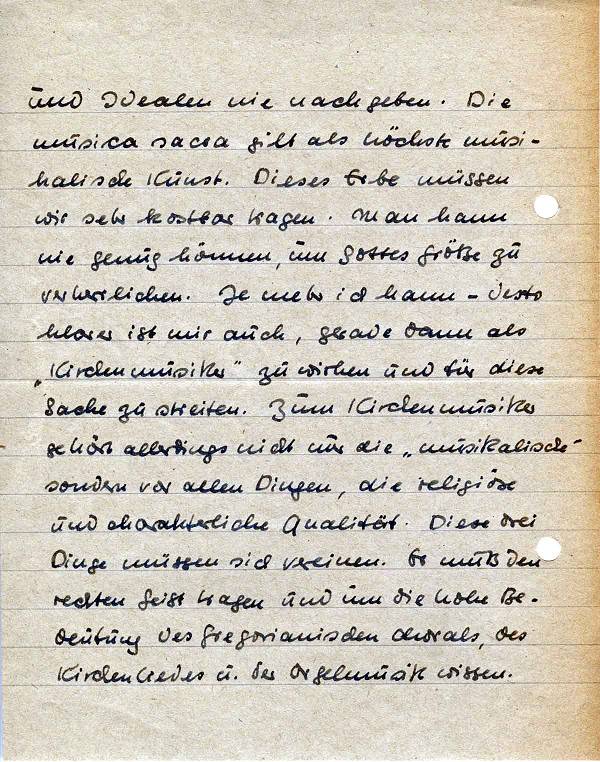 und Idealen nie nachgeben. Die
musica sacra gilt als höchste musi-
kalische Kunst. Dieses Erbe müssen
wir sehr kostbar tragen. Man kann
nie genug können, um Gottes Größe zu
verherrlichen. Je mehr ich kann - desto
klarer ist mir auch, gerade dann als
„Kirchenmusiker" zu wirken und für diese
Sache zu streiten. Zum Kirchenmusiker
gehört allerdings nicht nur die „musikalische"
sondern vor allen Dingen, die religiöse
und charakterliche Qualität. Diese drei
Dinge müssen sich vereinen. Er muß den
rechten Geist tragen und um die hohe Be-
deutung des Gregorianischen Chorals, des
Kirchenliedes u. der Orgelmusik wissen.